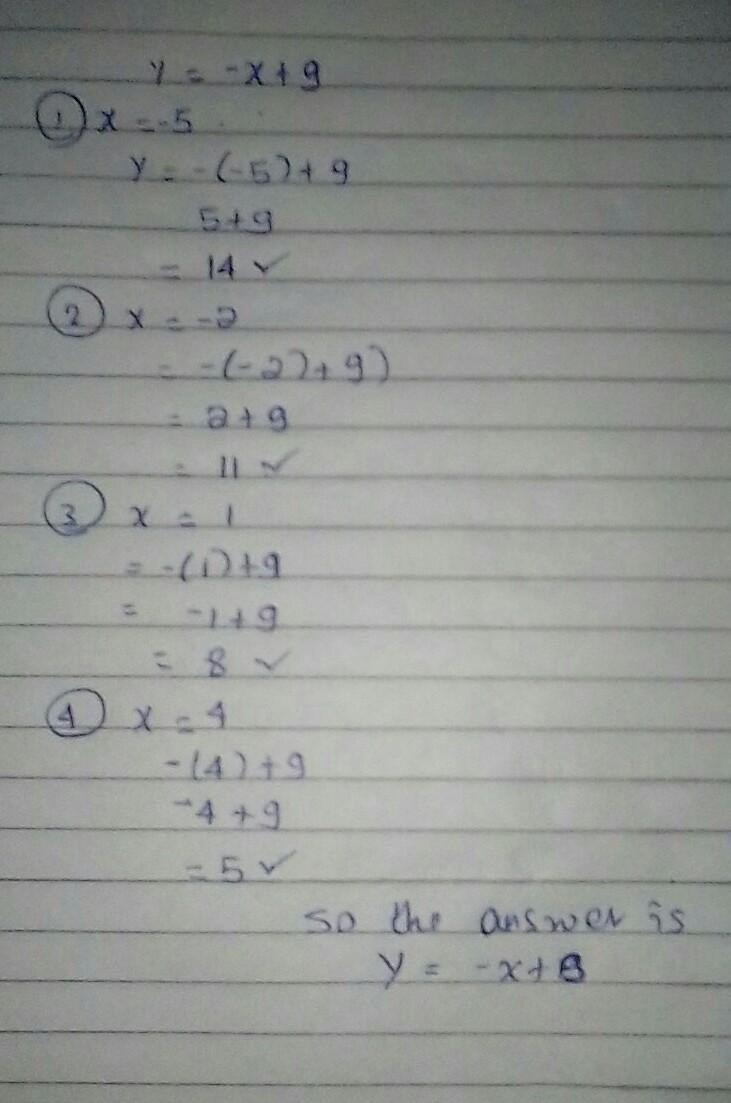 y = -x+9
① x = -5
y = -(-5)+9
5+9
= 14 ✓
② x = -2
= -(-2)+9)
= 2+9
= 11 ✓
③ x = 1
= -(1)+9
= -1+9
= 8 ✓
④ x = 4
-(4)+9
-4+9
= 5 ✓
so the answer is
y = -x+